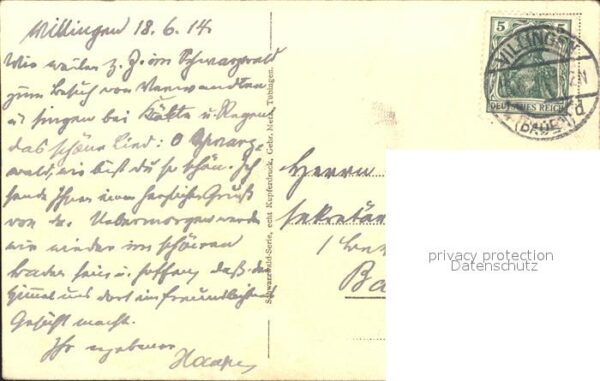 Villingen 18.6.14.
Wir weilen z. Z. im Schwarzwald
zum Besuch von Verwandten
u. singen bei Kälte u. Regen
das schöne Lied: O Schwarz-
wald, wie bist du so schön. Ich
sende Ihnen einen herzlichen Gruß
von da. Uebermorgen werden
wir wieder im schönen
Baden sein u. hoffen, daß der
Himmel uns dort ein freundlicheres
Gesicht macht.
Ihr ergebener
Schwarzwald-Serie, echt Kupferdruck, Gebr. Metz, Tübingen.
5 5
DEUTSCHES REICH
VILLINGEN
(BADEN)
Herrn
Sekretär
1
Ba
privacy protection
Datenschutz